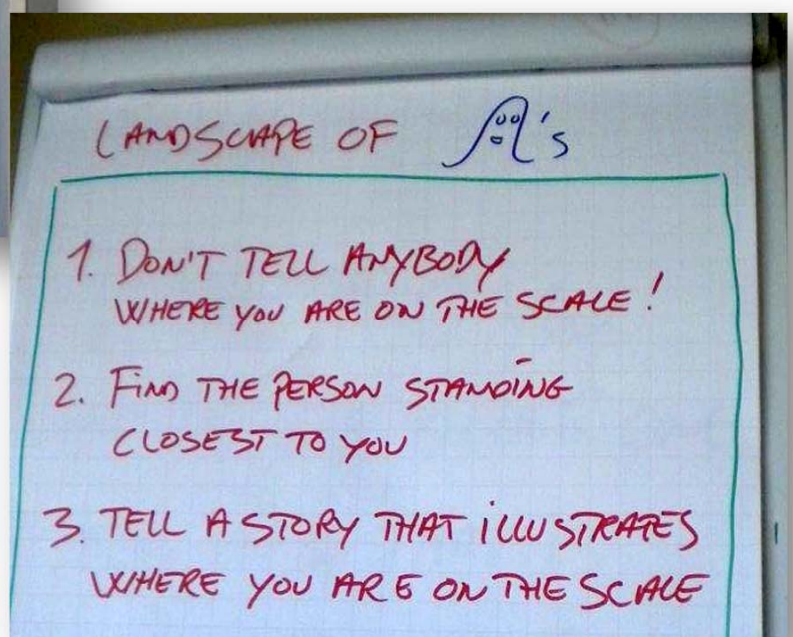 LANDSCAPE OF 's
1. DON'T TELL ANYBODY
WHERE YOU ARE ON THE SCALE!
2. FIND THE PERSON STANDING
CLOSEST TO YOU
3. TELL A STORY THAT ILLUSTRATES
WHERE YOU ARE ON THE SCALE